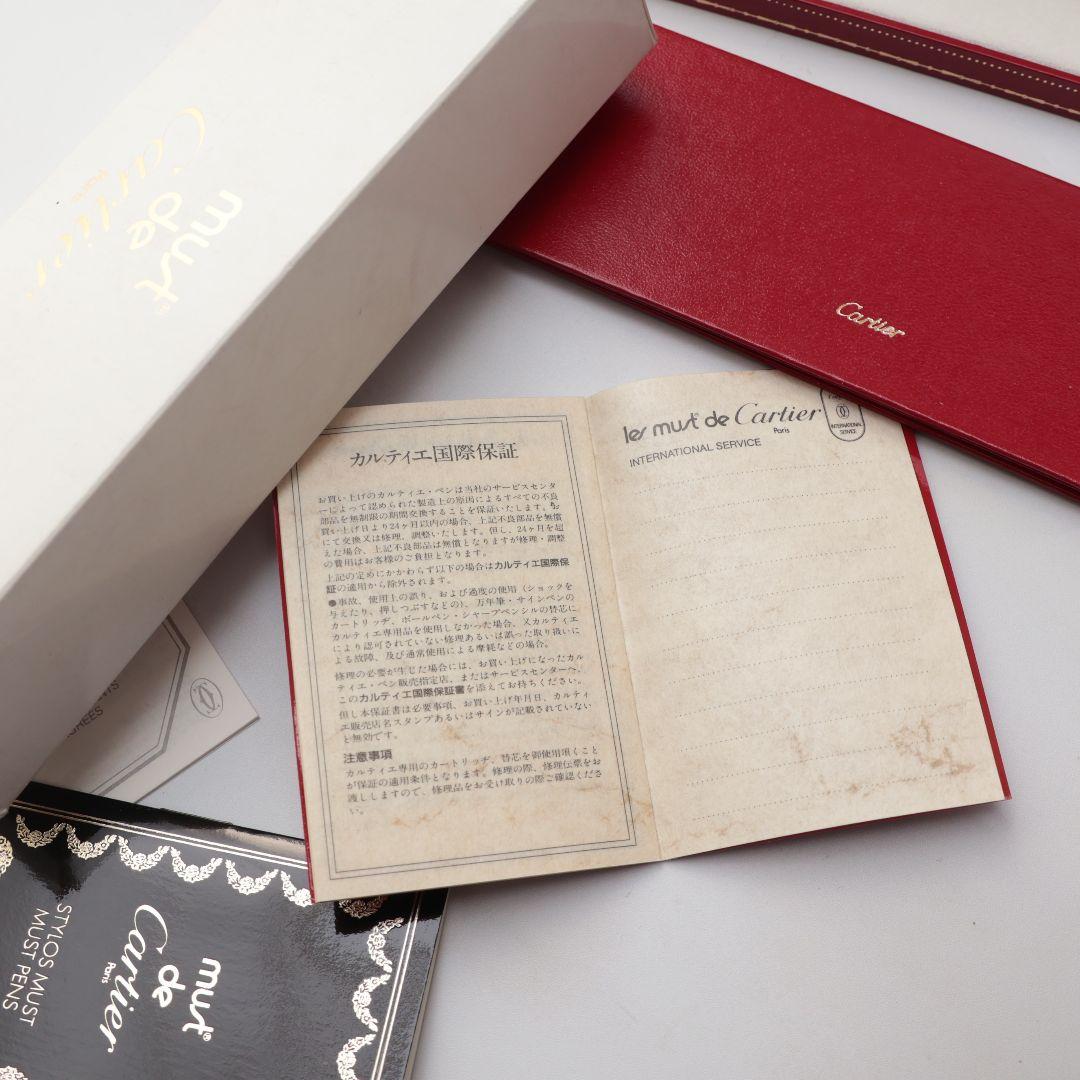 must
de
Cartier
Paris
Cartier
カルティエ国際保証
お買い上げのカルティエ・ペンは当社のサービスセンタ
ーによって認められた製造上の原因によるすべての不良
部品を無制限の期間交換することを保証いたします。お
買い上げ日より24ヶ月以内の場合、上記不良部品を無償
にて交換又は修理、調整いたします。但し、24ヶ月を超
えた場合、上記不良部品は無償となりますが修理・調整
の費用はお客様のご負担となります。
上記の定めにかかわらず以下の場合はカルティエ国際保
証の適用から除外されます。
●事故、使用上の誤り、および過度の使用（ショックを
与えたり、押しつぶすなどの）、万年筆・サインペンの
カートリッヂ、ボールペン・シャープペンシルの替芯に
カルティエ専用品を使用しなかった場合、又カルティエ
により認可されていない修理あるいは誤った取り扱いに
よる故障、及び通常使用による摩耗などの場合。
修理の必要が生じた場合には、お買い上げになったカル
ティエ・ペン販売指定店、またはサービスセンターへ、
このカルティエ国際保証書を添えてお持ちください。
但し本保証書は必要事項、お買い上げ年月日、カルティ
エ販売店名スタンプあるいはサインが記載されていない
と無効です。
注意事項
カルティエ専用のカートリッヂ、替芯を御使用頂くこと
が保証の適用条件となります。修理の際、修理伝票をお
渡ししますので、修理品をお受け取りの際ご確認くださ
い。
les must de Cartier
Paris
INTERNATIONAL SERVICE
INTERNATIONAL
SERVICE
must
de
Cartier
Paris
STYLOS MUST
MUST PENS